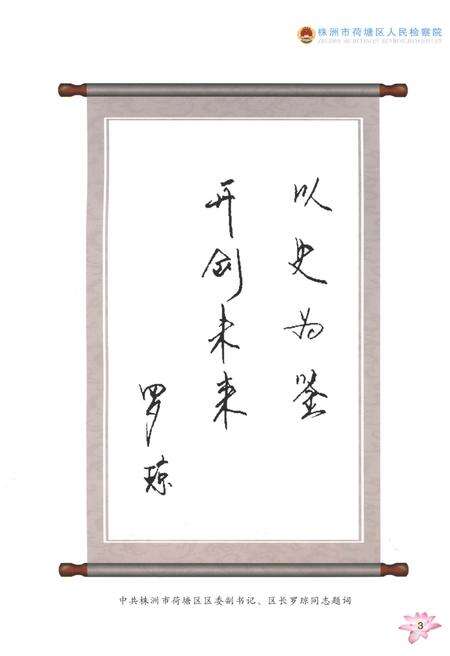 株洲市荷塘区人民检察院
以史为鉴
开创未来
罗琼
中共株洲市荷塘区区委副书记、区长罗琼同志题词
3